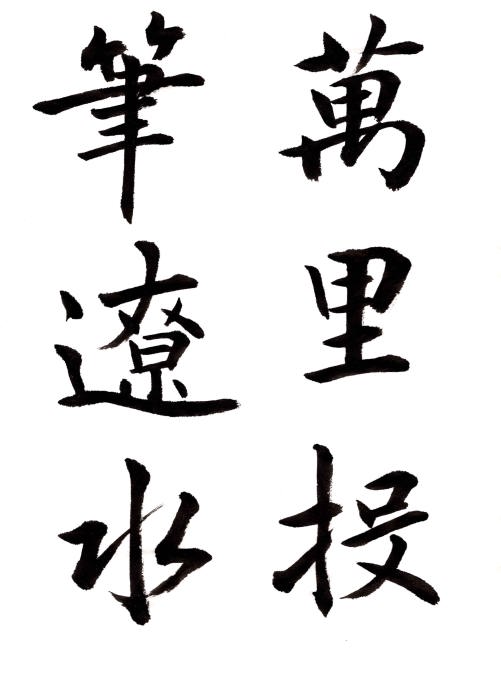 萬里投
筆遼水